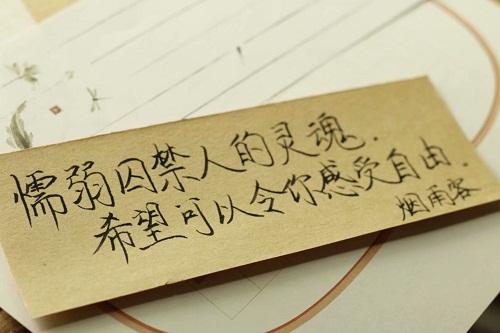 懦弱囚禁人的灵魂.
希望可以令你感受自由.
烟雨客